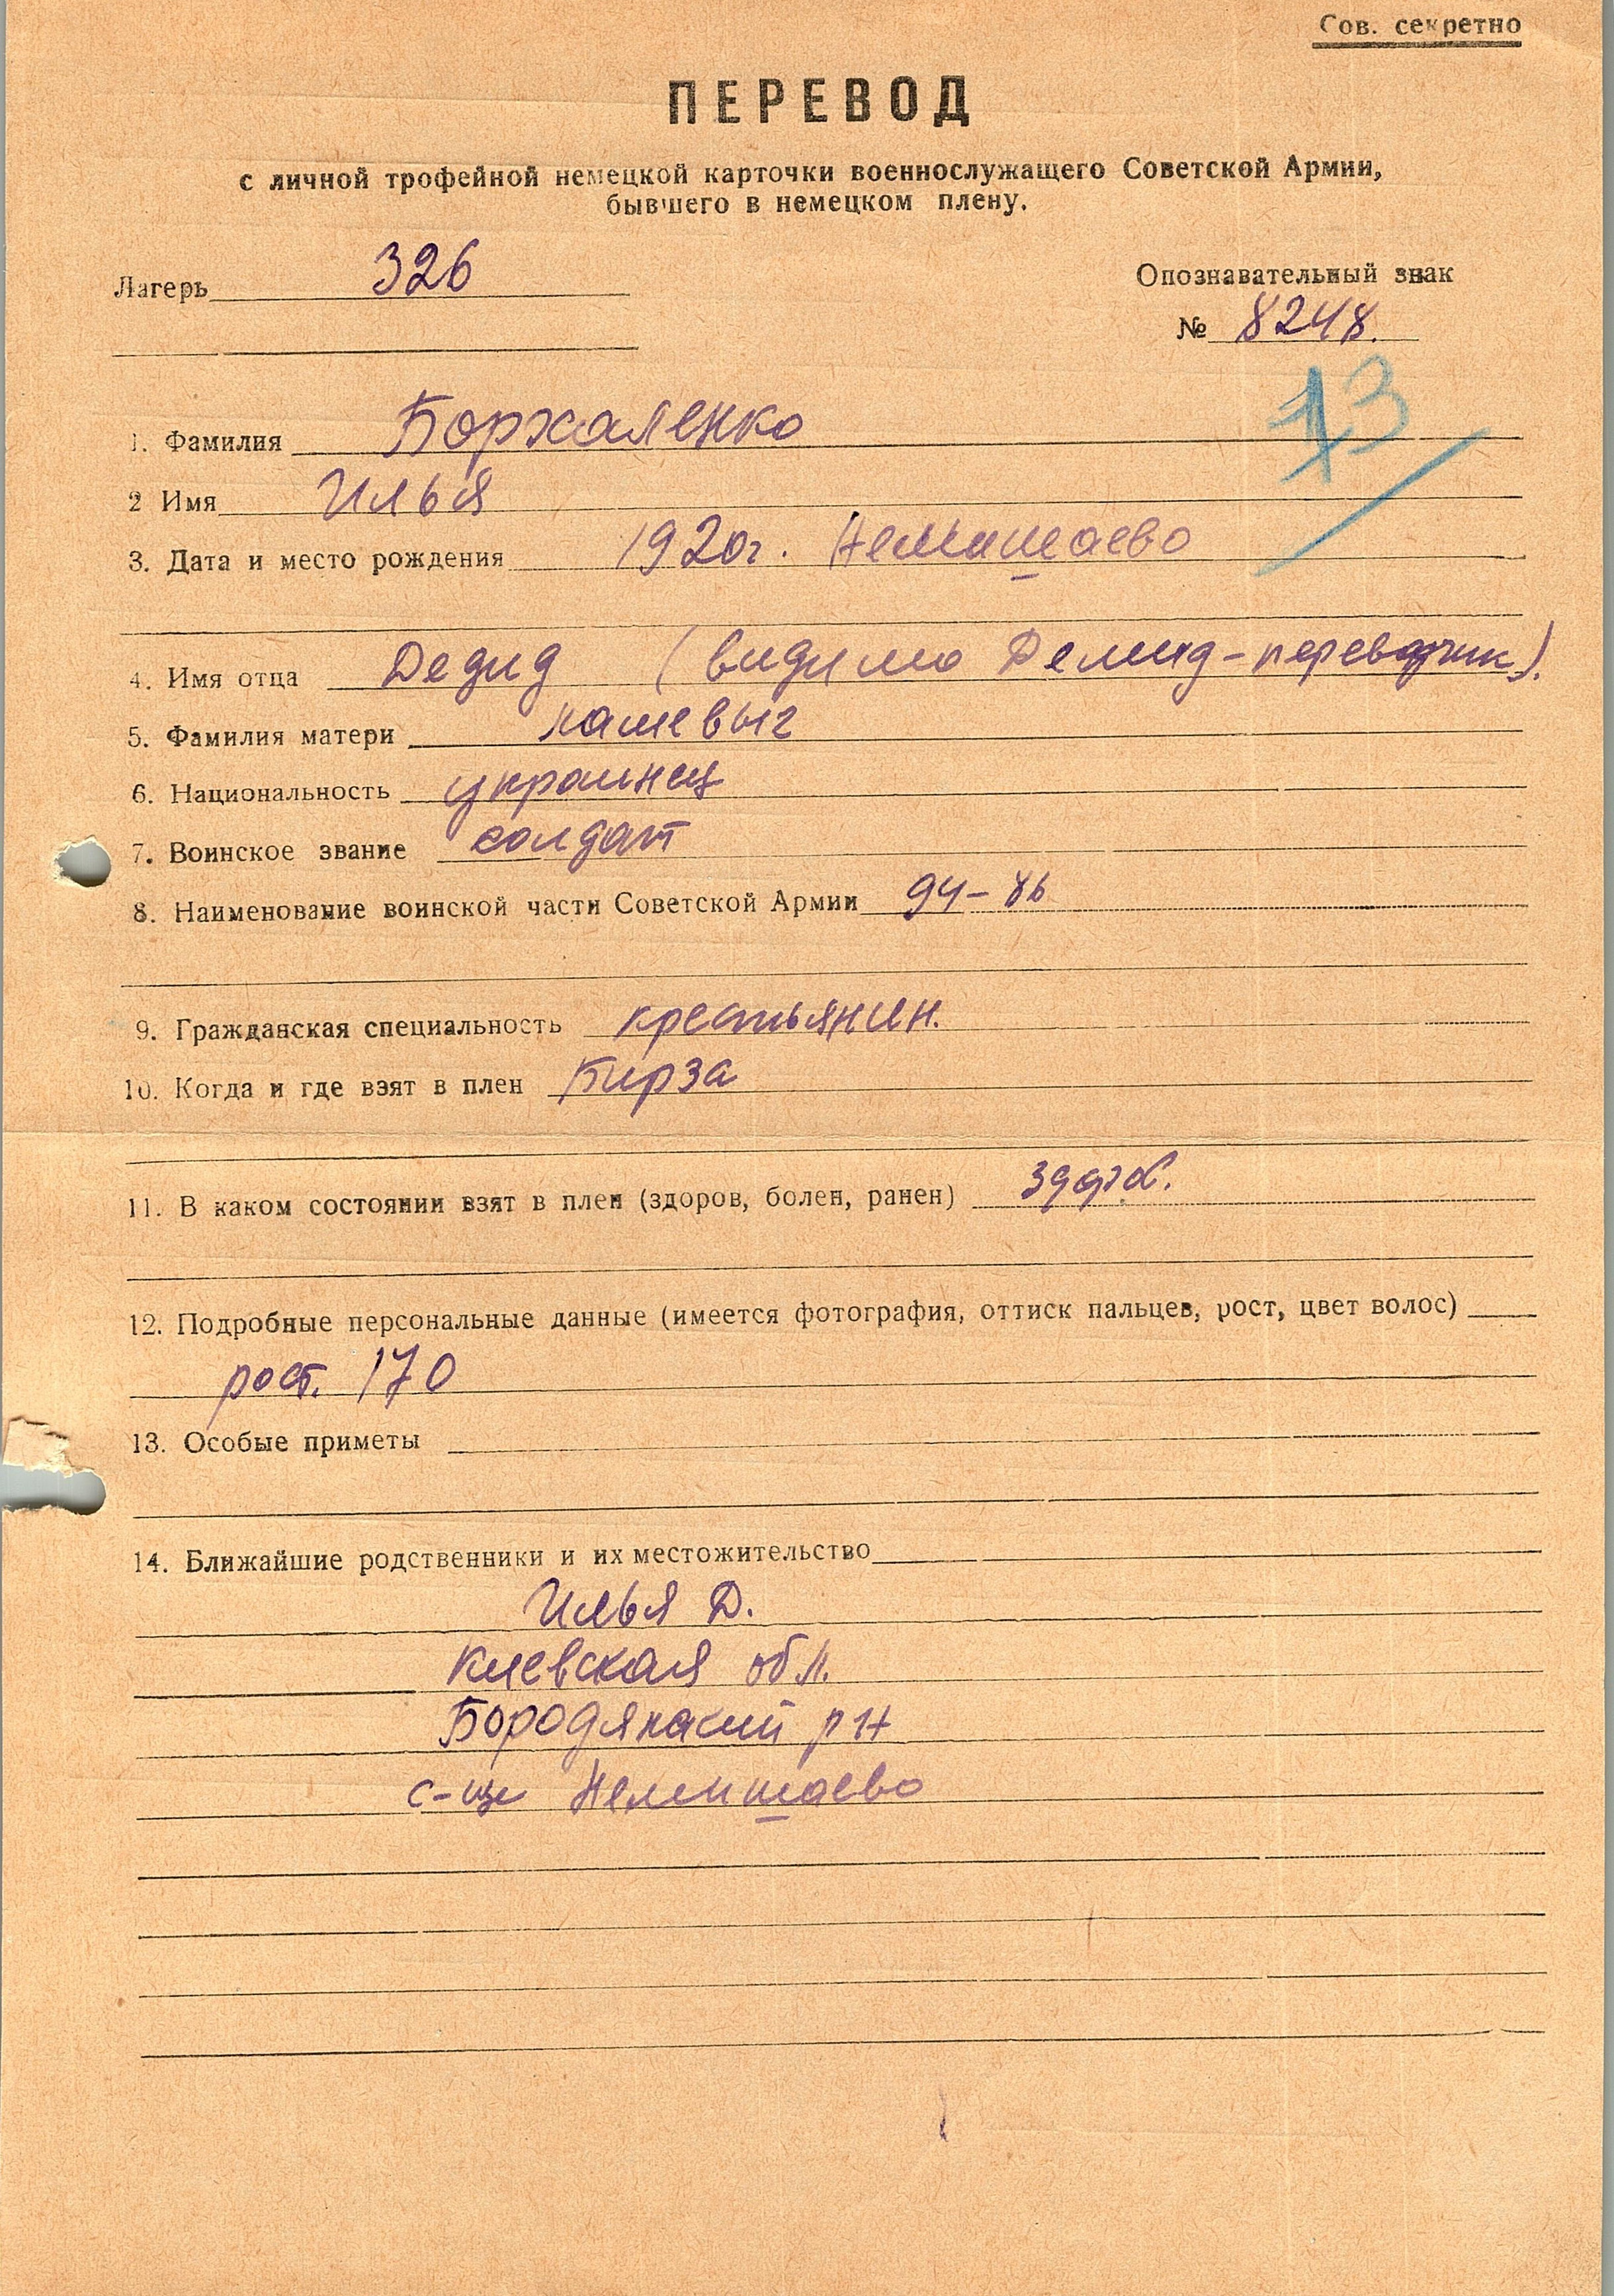 Сов. секретно
ПЕРЕВОД
с личной трофейной немецкой карточки военнослужащего Советской Армии,
бывшего в немецком плену.
Лагерь 326
Опознавательный знак
№ 8248.
13
1. Фамилия Боржаленко
2 Имя Илья
3. Дата и место рождения 1920г. Немишаево
4. Имя отца Дедид (видимо Демид-переводчик).
5. Фамилия матери
6. Национальность украинец
7. Воинское звание солдат
8. Наименование воинской части Советской Армии 94-
9. Гражданская специальность крестьянин.
10. Когда и где взят в плен Бирза
11. В каком состоянии взят в плен (здоров, болен, ранен) здоров.
12. Подробные персональные данные (имеется фотография, оттиск пальцев, рост, цвет волос)
рост. 170
13. Особые приметы
14. Ближайшие родственники и их местожительство
Илья Д.
Киевская обл.
Бородянский рн
с-ще Немишаево